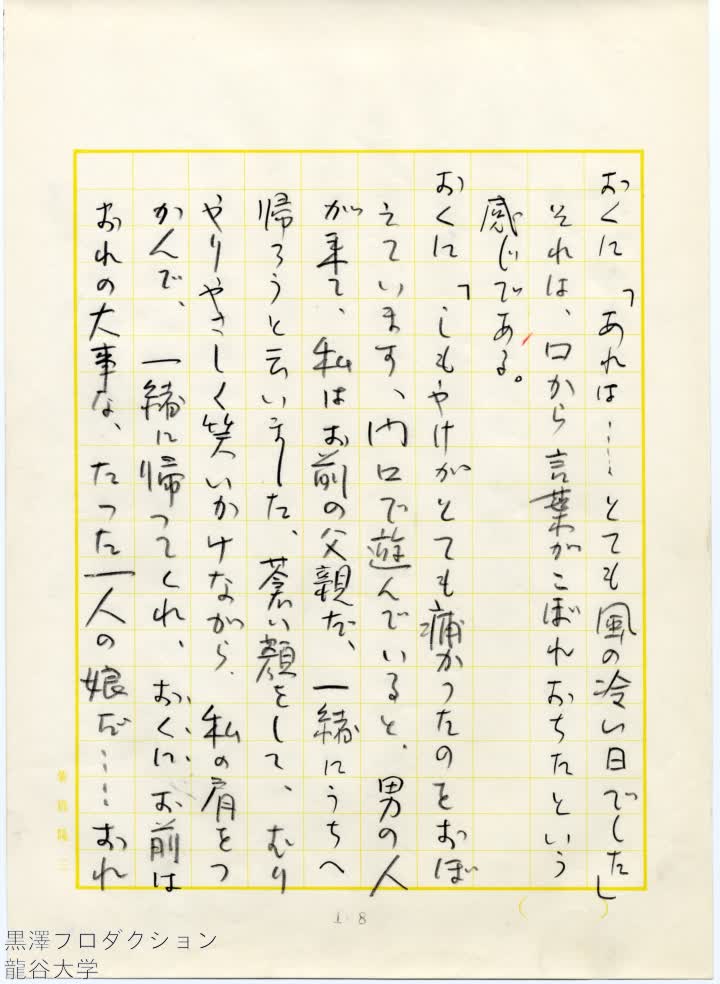 おくに「あれは……とても風の冷い日でした」
それは、口から言葉がこぼれおちたという
感じである。
おくに「しもやけがとても痛かったのをおぼ
えています、門口で遊んでいると、男の人
が来て、私はお前の父親だ、一緒にうちへ
帰ろうと云いました、蒼い顔をして、むり
やりやさしく笑いかけながら、私の肩をつ
かんで、一緒に帰ってくれ、おくに、お前は
おれの大事な、たった一人の娘だ……おれ
18
黒澤プロダクション
龍谷大学